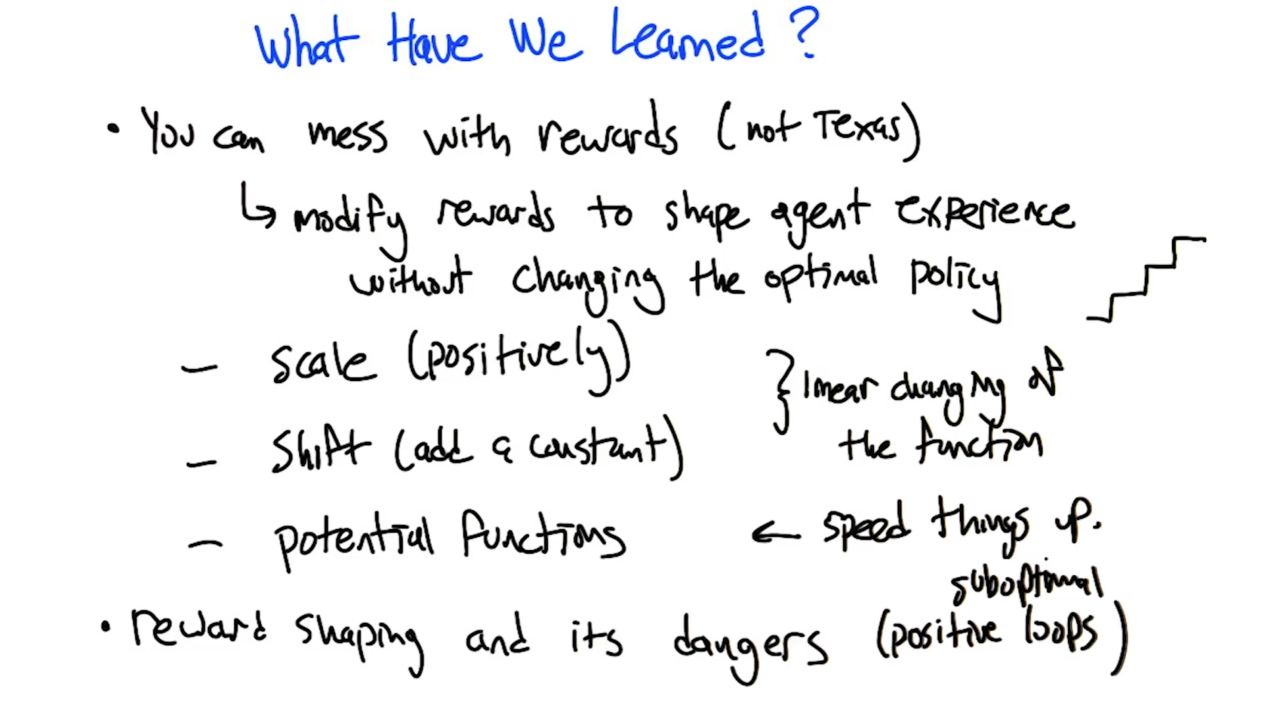 What Have We Learned?
• You can mess with rewards (not Texas)
↳ modify rewards to shape agent experience
without changing the optimal policy
– scale (positively)
– shift (add a constant)
} linear changing of
the function
– potential functions ← speed things up.
• reward shaping and its dangers (suboptimal
positive loops)